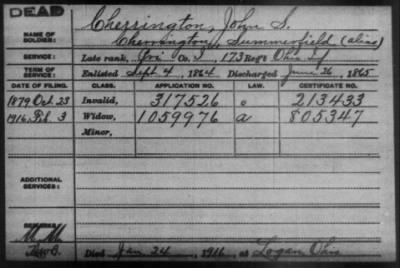 DEAD
NAME OF SOLDIER: Cherrington, John S.
Cherrington, Summerfield (alias)
SERVICE: Late rank, Pri Co. , 173 Reg't Ohio Inf
TERM OF SERVICE: Enlisted Sept. 4, 1864 Discharged June 26, 1865
DATE OF FILING. CLASS. APPLICATION NO. LAW. CERTIFICATE NO.
1879 Oct. 23 Invalid, 317526 213433
1916, Feb. 3 Widow, 1059976 a 805347
Minor,
ADDITIONAL SERVICES:
REMARKS:
Died Jan 24, 1916, at Logan Ohio